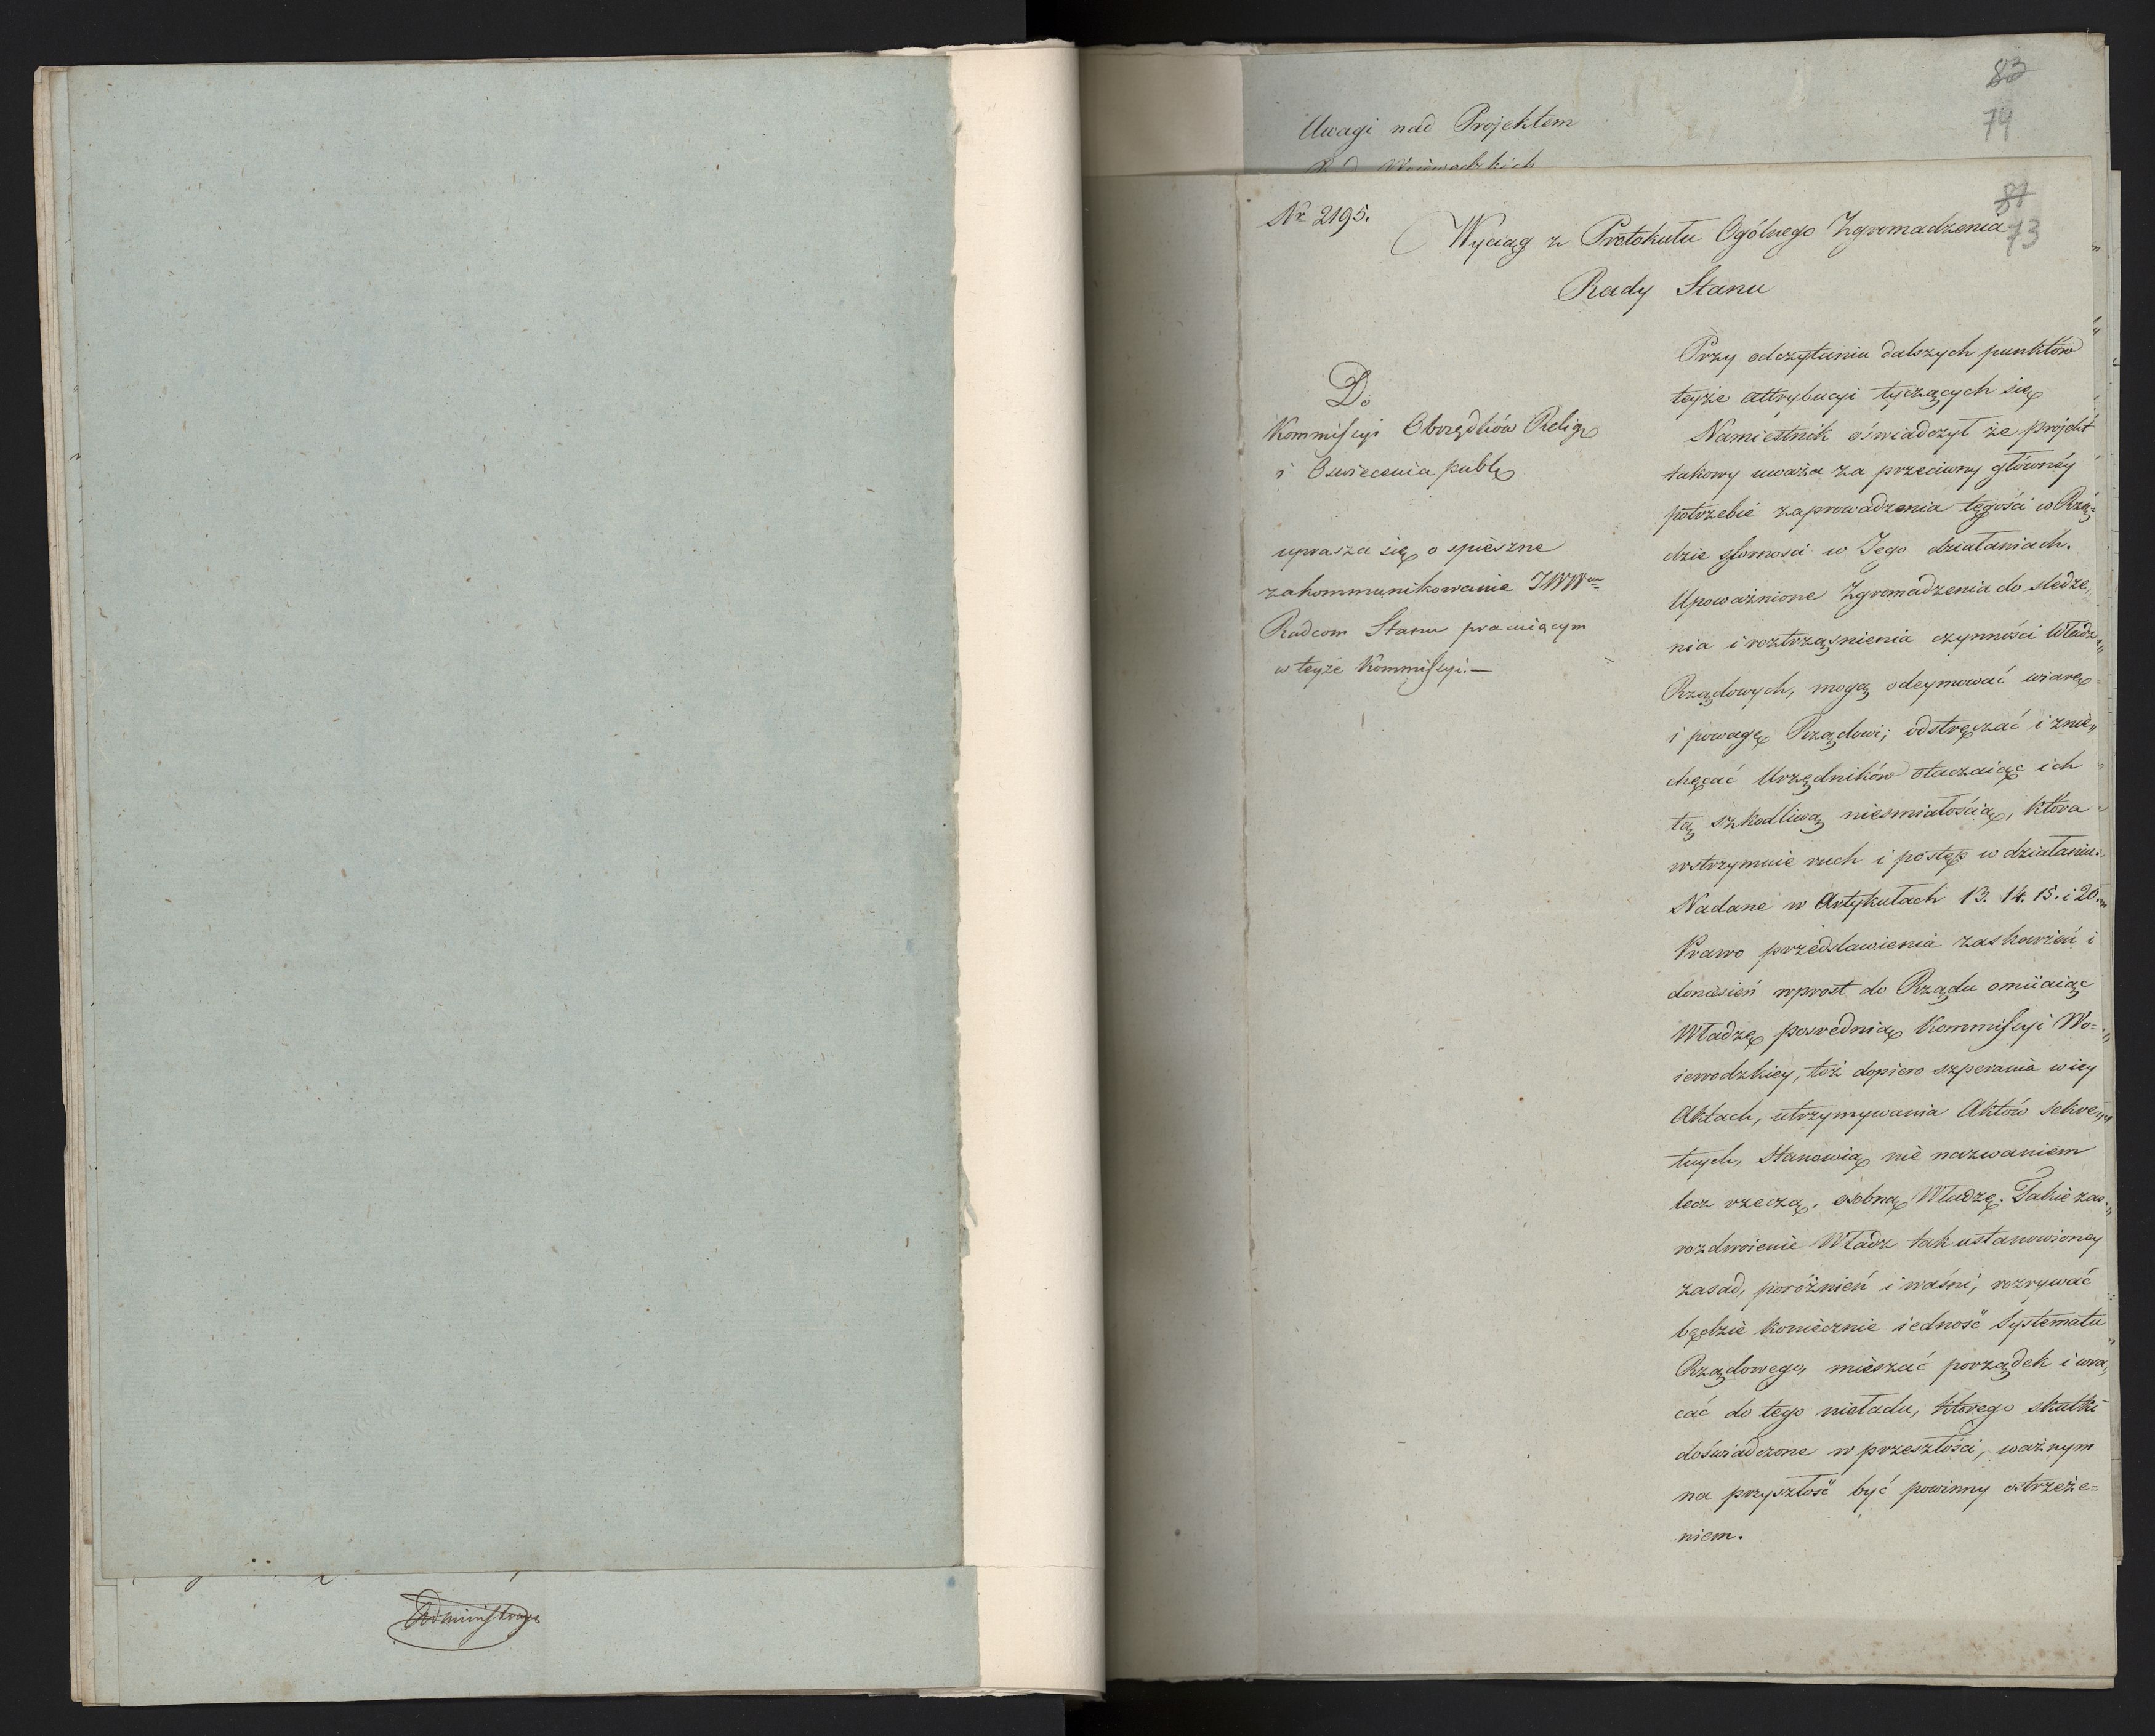 Administracyi
83
74
Uwagi nad Projektem
Rad Woiewodzkich
81
73
Nr 2195.
Wyciąg z Protokułu Ogólnego Zgromadzenia
Rady Stanu
Do
Kommissyi Obrządków Relig
i Oswiecenia publ
uprasza się o spieszne
zakommunikowanie JWWm
Radcom Stanu pracuiącym
w teyże Kommissyi.—
Przy odczytaniu dalszych punktów
teyże attrybucyi tyczących się
Namiestnik oświadczył że projekt
takowy uważa za przeciwny główney
potrzebie zaprowadzenia tęgości w Rzą=
dzie sfornosci w Jego działaniach.
Upoważnione Zgromadzenia do sledze„
nia i roztrząsnienia czynności Władz
Rządowych, mogą odeymować wiarę
i powagę Rządowi; odstręczać i znie„
chęcać Urzędników otaczaiąc ich
tą szkodliwą niesmiałością, która
wstrzymuie ruch i postęp w działaniu.
Nadane w Artykułach 13. 14. 15. i 20.
Prawo przedstawienia zaskarżeń i
doniesień wprost do Rządu omiiaiąc
Władzę posrednią Kommissyi Wo=
iewodzkiey, toż dopiero szperania w iey
Aktach, utrzymywania Aktów sekre„
tnych, Stanowią nie nazwaniem
lecz rzeczą, osobną Władzę. Takie zas
rozdwoienie Władz tak ustanowioney
zasad, poróżnień i waśni, rozrywać
będzie koniecznie iedność Systematu
Rządowego, mieszać porządek i wra„
cać do tego nieładu, którego skutki
doświadczone w przeszłości, ważnym
na przyszłość być powinny ostrzeże=
niem.